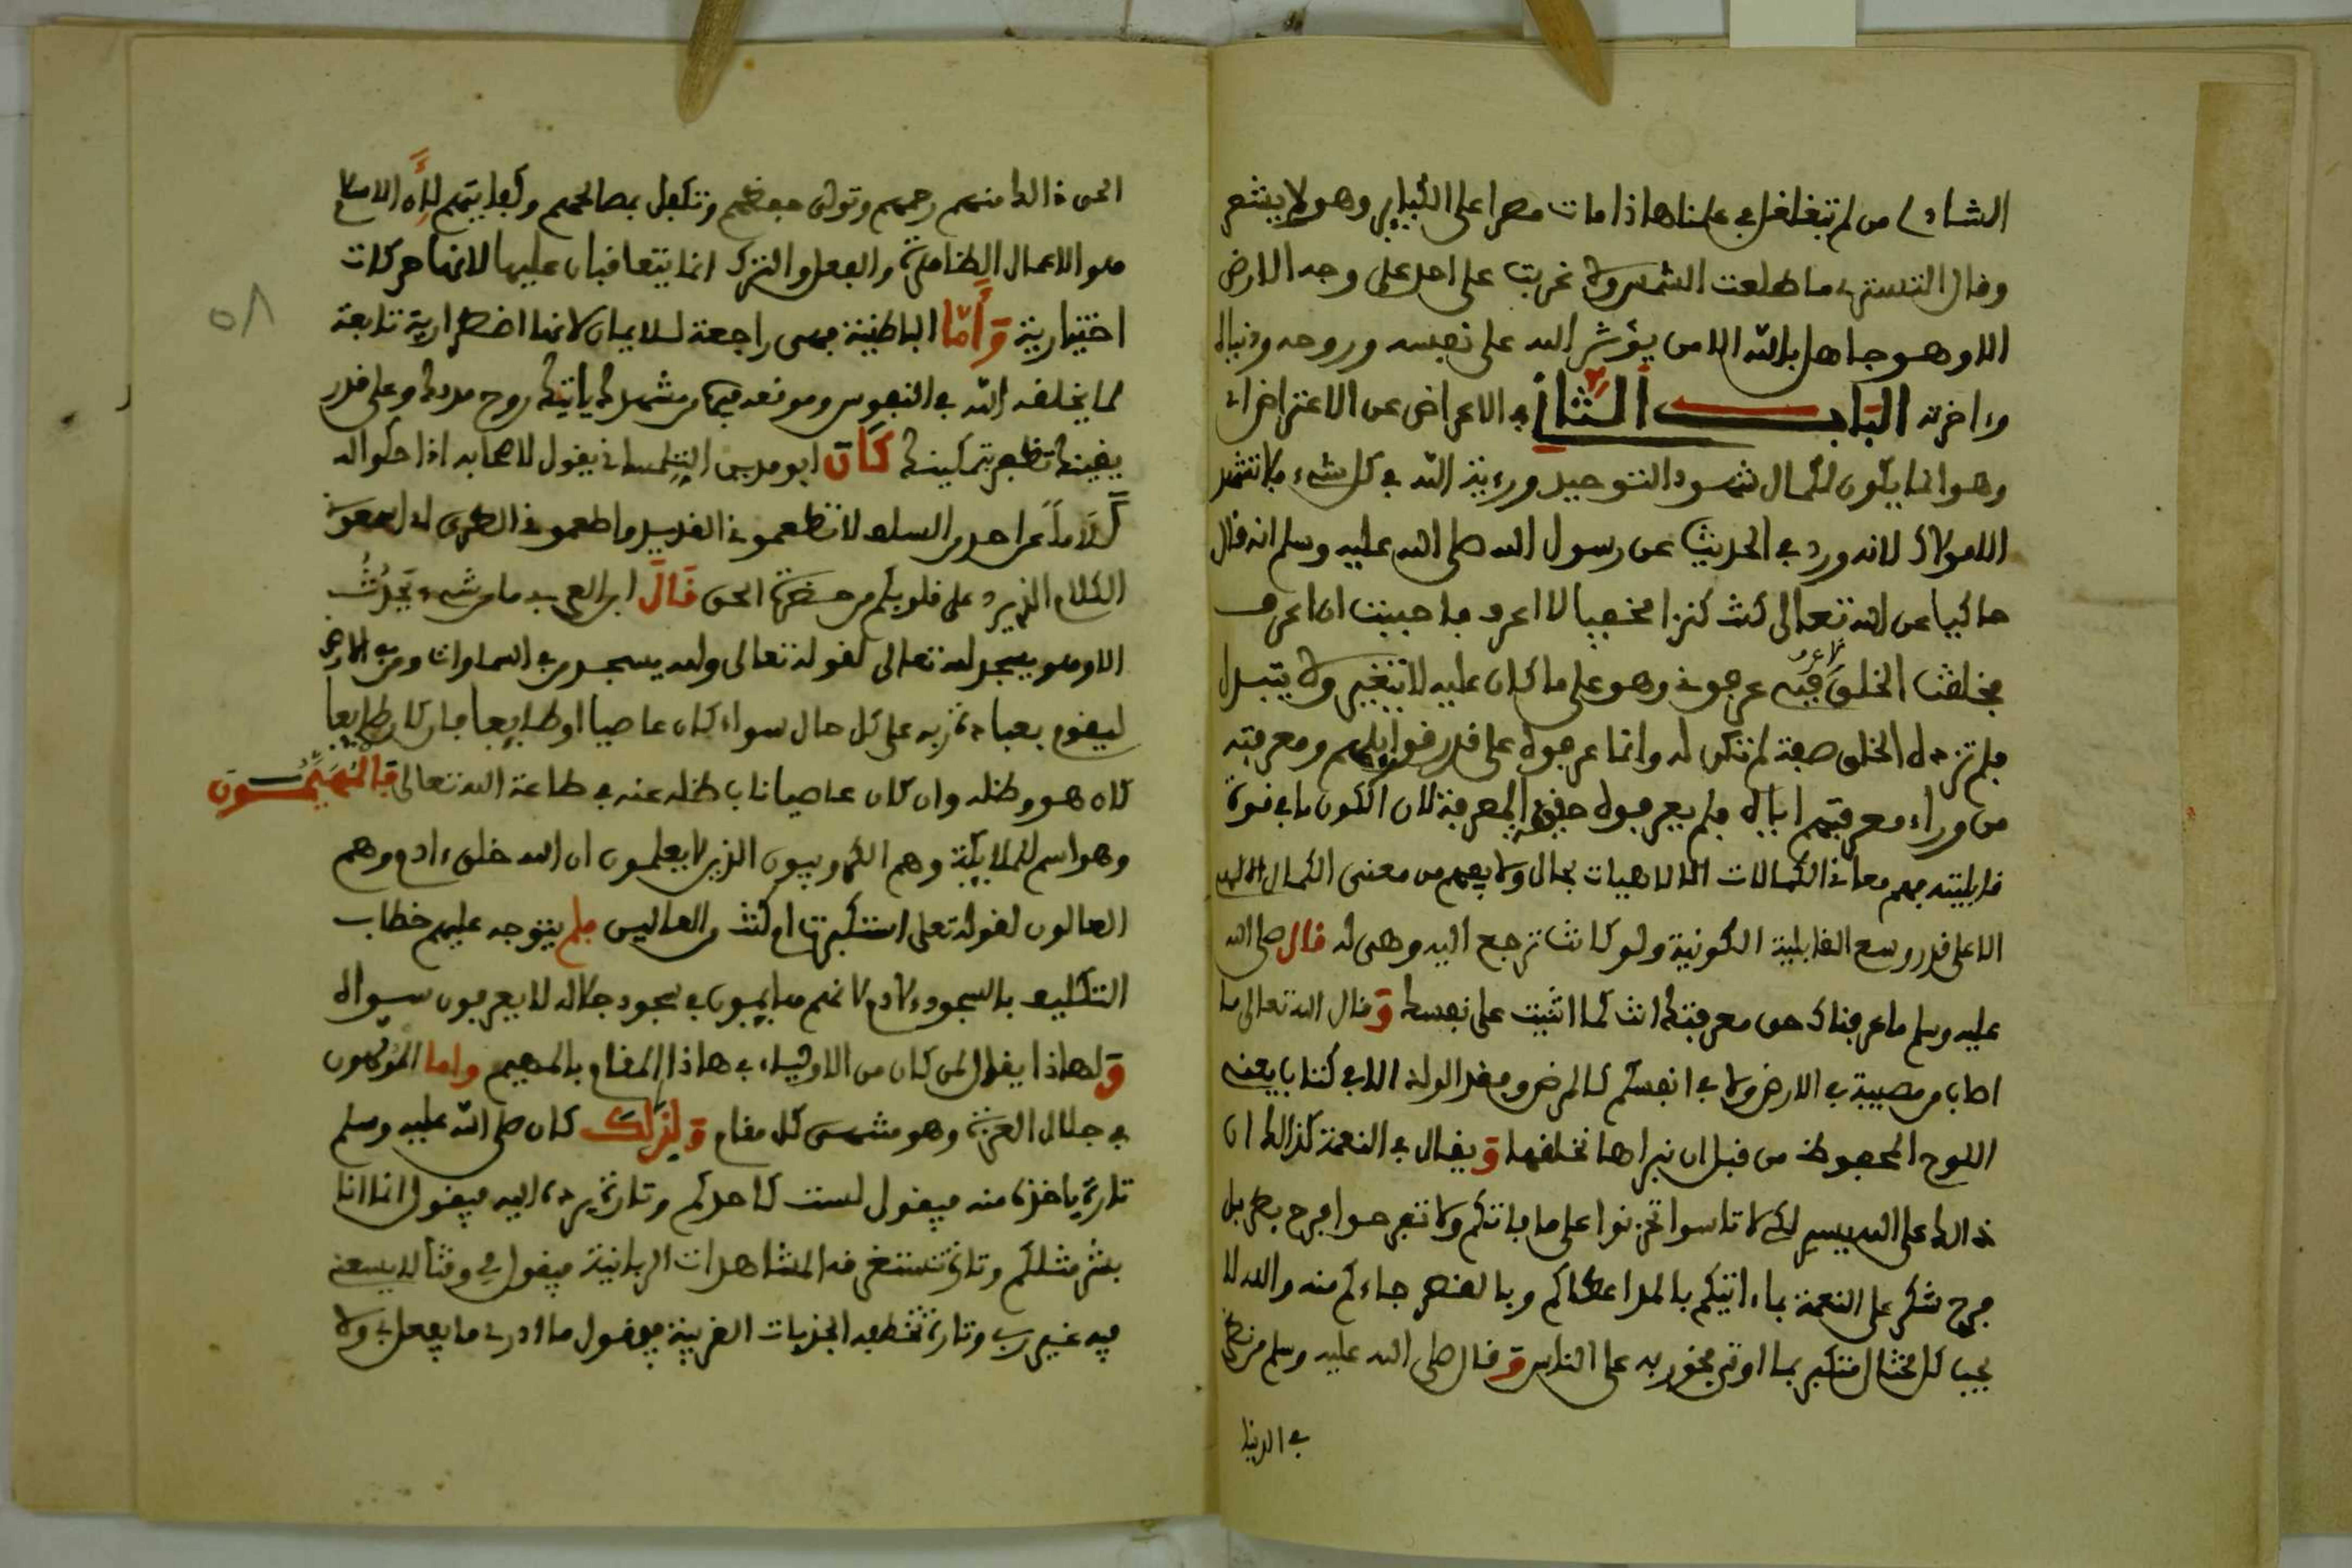 الشاذلى من لم يتغلغل في علمنا هاذا مات مصرا على الكبائر وهو لا يشعر
وقال التستري ما طلعت الشمس ولا غربت على احد على وجه الارض
الا وهو جاهل بالله الا من يؤثر الله على نفسه وروحه ودنياه
وءاخرته الباب الثاني في الاعراض عن الاعتراضات
وهو انما يكون لكمال شهود التوحيد ورءية الله في كل شيء فلا تشهد
الا مولاك لانه ورد في الحديث عن رسول الله صلى الله عليه وسلم انه قال
حاكيا عن الله تعالى كنت كنزا مخفيا لا اعرف فاحببت ان اعرف
فخلقت الخلق فبه عرفوني وهو على ما كان عليه لا يتغير ولا يتبدل
فلم تزده الخلق صفة لم تكن له وانما عرفوه على قدر قوابلهم ومعرفته
من وراء معرفتهم اياه فلم يعرفوه حق المعرفة لان الكون ما في قوة
قابليته فهم معاني الكمالات الالاهيات بحال ولا يفهم من معنى الكمال الالهي
الا على قدر وسع القابلية الكونية ولو كانت ترجع اليه وهي له قال صلى الله
عليه وسلم ما عرفناك حق معرفتك انت كما اثنيت على نفسك وقال الله تعالى ما
اصاب من مصيبة في الارض ولا في انفسكم كالمرض وفقد الولد الا في كتاب يعني
اللوح المحفوظ من قبل ان نبراها نخلقها ويقال في النعمة كذالك ان
ذالك على الله يسير لكي لا تاسوا تحزنوا على ما فاتكم ولا تفرحوا فرح بطر بل
فرح شكر على النعمة بما ءاتيكم بالمد اعطاكم وبالقصر جاءكم منه والله لا
يحب كل مختال متكبر بما اوتي فخور به على الناس وقال صلى الله عليه وسلم من نظر
في الدنيا
الحق ذالك منهم رحمهم وتولى بعضهم وتكفل بمصالحهم وكفايتهم لأن الاسلام
هو الاعمال الظاهرة والفعل والترك انما يتعاقبان عليها لانها حركات
اختيارية وأما الباطنية فهي راجعة للايمان لانها اضطرارية تابعة
لما يخلقه الله في النفوس وموقعه فيها من مشهدك ياتيك روح مددك وعلى قدر
يقينك تظهر تمكينك كان ابو مدين التلمساني يقول لاصحابه اذا حكوا له
كلاما عن احد من السلف لا تطعمونا القديد واطعمونا الطري اي اسمعونا
الكلام الذي يرد على قلوبكم من حضرة الحق قال ابن العربي ما من شيء يحدث
الا وهو يسجد لله تعالى لقوله تعالى ولله يسجد من في السماوات ومن في الارض
ليقوم بعبادة ربه على كل حال سواء كان عاصيا او طايعا فان كان طايعا
كان هو وظله وان كان عاصيا ناب ظله عنه في طاعة الله تعالى فالمهيمون
وهو اسم للملايكة وهم الكروبيون الذين لا يعلمون ان الله خلق ءادم وهم
العالون لقوله تعلى استكبرت ام كنت من العالين فلم يتوجه عليهم خطاب
التكليف بالسجود لءادم لانهم هايمون في سجود جلاله لا يعرفون سواه
ولهاذا يقال لمن كان من الاولياء في هاذا المقام بالمهيم واما المولهون
في جلال العزة وهو منتهى كل مقام ولذلك كان صلى الله عليه وسلم
تارة ياخذه منه فيقول لست كاحدكم وتارة يرده اليه فيقول انما انا
بشر مثلكم وتارة تستغرقه المشاهدات الربانية فيقول لي وقت لا يسعني
فيه غير ربي وتارة تخطفه الجذبات الغريبة فيقول ما ادري ما يفعل بي ولا
٥٨